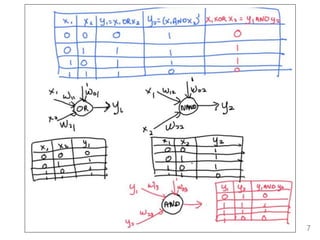 x₁ x₂ y₁=x₁ORx₂ y₂={x₁ANDx₂} x₁XORx₂ = y₁ANDy₂
0 0 0 1 0
0 1 1 1 1
1 1 1
1 1 1 0 0
x₁ w₁₁ w₀₁ OR y₁
x₂ w₂₁
x₁ w₁₂ w₀₂ NAND y₂
x₂ w₂₂
x₁ x₂ y₁
0 0 0
0 1 1
1 0 1
1 1 1
x₁ x₂ y₂
0 0 1
0 1 1
1 0 1
1 1 0
y₁ w₁₃ w₀₃ AND
y₂ w₂₃
y₁ y₂ y₁ANDy₂
0 1 0
1 1 1
1 1 1
1 0 0
7